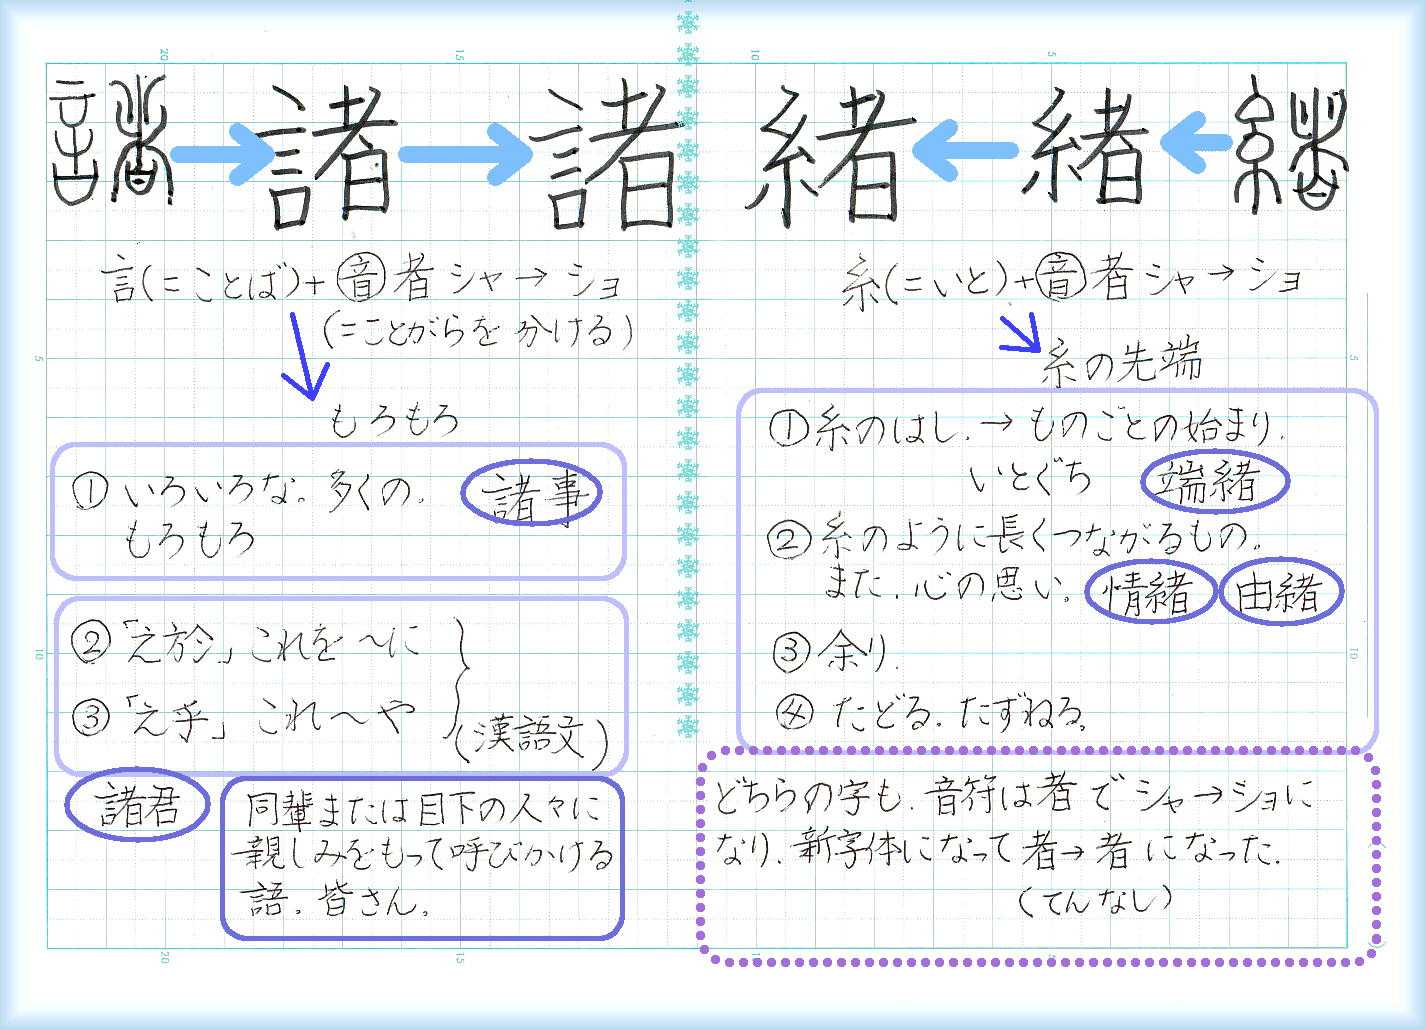 諸 諸 諸
言(=ことば)+音者 シャ→ショ
(=ことがらを分ける)
もろもろ
①いろいろな。多くの。 諸事
もろもろ
②「之於」これを〜に
③「之乎」これ〜や
(漢語文)
諸君
同輩または目下の人々に
親しみをもって呼びかける
語。皆さん。
緒 緒 緒
糸(=いと)+音者 シャ→ショ
糸の先端
①糸のはし.→ものごとの始まり.
いとぐち 端緒
②糸のように長くつながるもの。
また.心の思い。 情緒 由緒
③余り.
④たどる.たずねる。
どちらの字も.音符は者でシャ→ショに
なり.新字体になって者→者になった.
(てんなし)
20 15 10 5
5 10
5 10
20 15